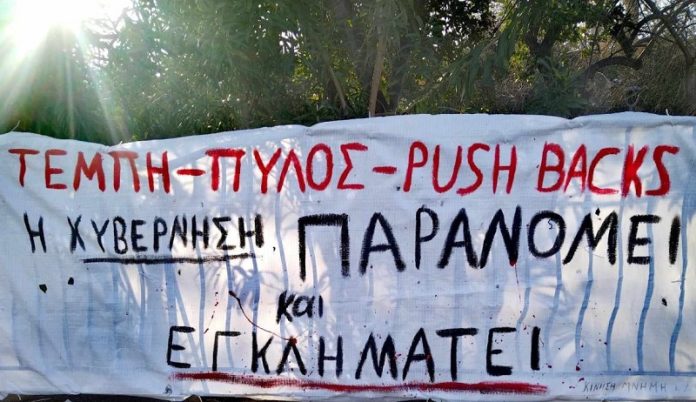 ΤΕΜΠΗ-ΠΥΛΟΣ-PUSH BACKS
Η ΧΥΒΕΡΝΗΣΗ ΠΑΡΑΝΟΜΕΙ
και
ΕΓΚΛΗΜΑΤΕΙ
ΚΙΝΗΣΗ ΜΝΗΜΗ